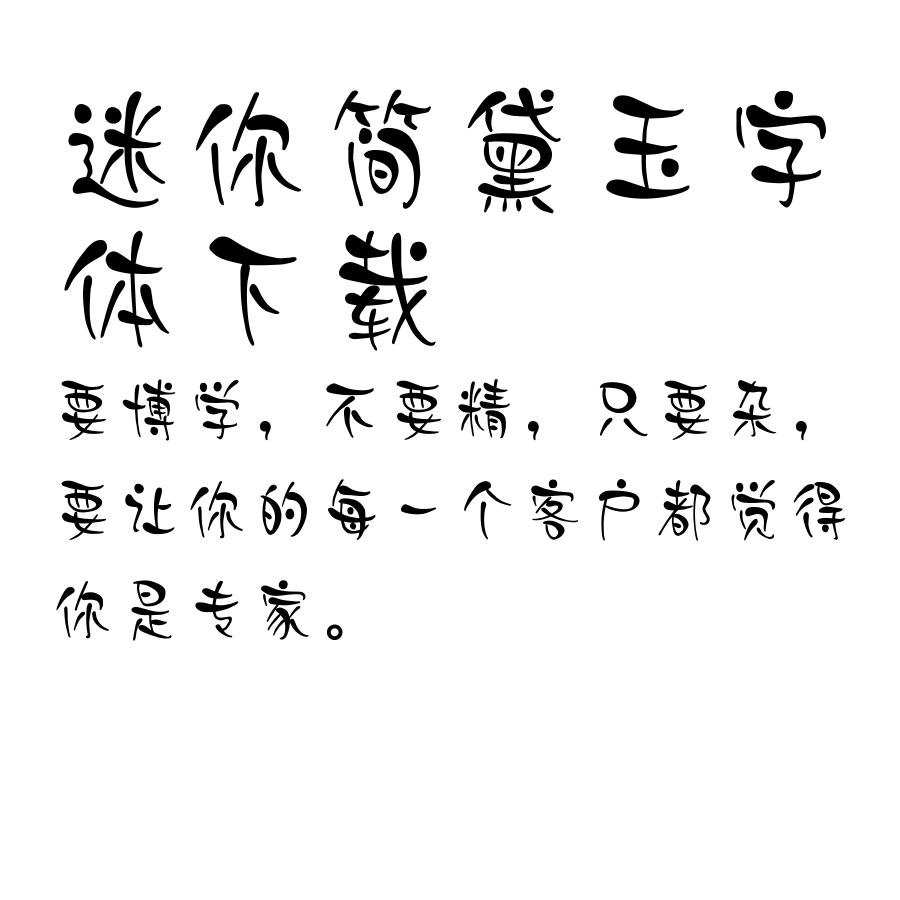 迷你简黛玉字
体下载
要博学，不要精，只要杂，
要让你的每一个客户都觉得
你是专家。